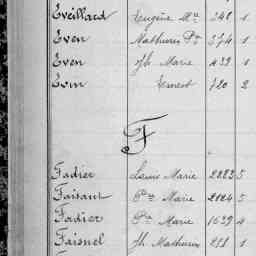 Eveillard Eugène Mie 248 1
Even Mathurin Pre 374 1
Even Jh Marie 439 1
Evin Ernest 720 2
F
Fadier Louis Marie 2223 5
Faisant Pre Marie 2024 5
Fadier Pre Marie 1639 4
Faisnel Jh Mathurin 221 1